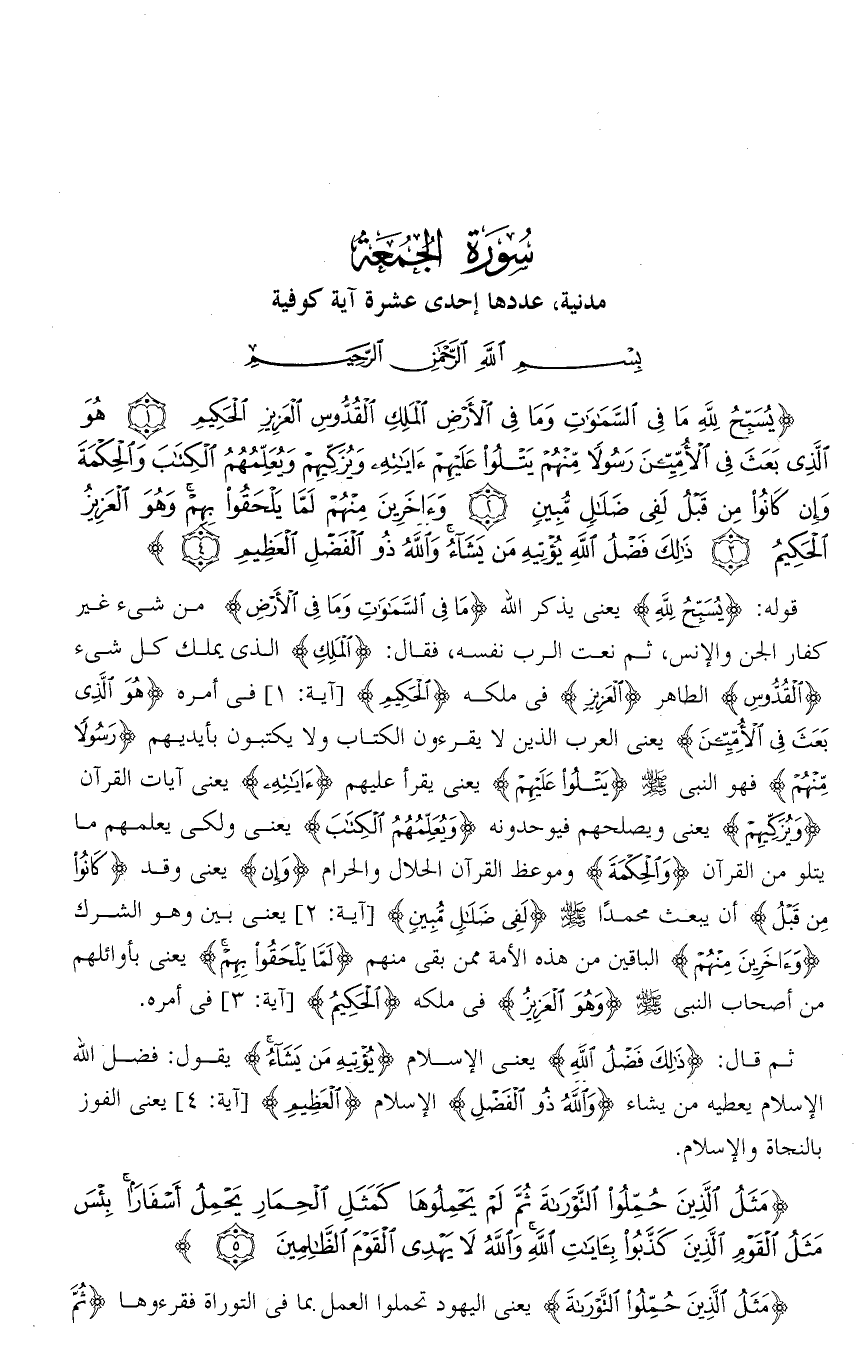 سُورَةُ الجُمُعَة
مدنية، عددها إحدى عشرة آية كوفية
بِسْمِ ٱللَّهِ ٱلرَّحْمَٰنِ ٱلرَّحِيمِ
﴿يُسَبِّحُ لِلَّهِ مَا فِى ٱلسَّمَٰوَٰتِ وَمَا فِى ٱلْأَرْضِ ٱلْمَلِكِ ٱلْقُدُّوسِ ٱلْعَزِيزِ ٱلْحَكِيمِ ١ هُوَ
ٱلَّذِى بَعَثَ فِى ٱلْأُمِّيِّـۧنَ رَسُولًا مِّنْهُمْ يَتْلُوا۟ عَلَيْهِمْ ءَايَٰتِهِۦ وَيُزَكِّيهِمْ وَيُعَلِّمُهُمُ ٱلْكِتَٰبَ وَٱلْحِكْمَةَ
وَإِن كَانُوا۟ مِن قَبْلُ لَفِى ضَلَٰلٍ مُّبِينٍ ٢ وَءَاخَرِينَ مِنْهُمْ لَمَّا يَلْحَقُوا۟ بِهِمْ ۚ وَهُوَ ٱلْعَزِيزُ
ٱلْحَكِيمُ ٣ ذَٰلِكَ فَضْلُ ٱللَّهِ يُؤْتِيهِ مَن يَشَآءُ ۚ وَٱللَّهُ ذُو ٱلْفَضْلِ ٱلْعَظِيمِ ٤﴾
قوله: ﴿يُسَبِّحُ لِلَّهِ﴾ يعنى يذكر الله ﴿مَا فِى ٱلسَّمَٰوَٰتِ وَمَا فِى ٱلْأَرْضِ﴾ من شىء غير
كفار الجن والإنس، ثم نعت الرب نفسه، فقال: ﴿ٱلْمَلِكِ﴾ الذى يملك كل شىء
﴿ٱلْقُدُّوسِ﴾ الطاهر ﴿ٱلْعَزِيزِ﴾ فى ملكه ﴿ٱلْحَكِيمِ﴾ [آية: ١] فى أمره ﴿هُوَ ٱلَّذِى
بَعَثَ فِى ٱلْأُمِّيِّـۧنَ﴾ يعنى العرب الذين لا يقرءون الكتاب ولا يكتبون بأيديهم ﴿رَسُولًا
مِّنْهُمْ﴾ فهو النبى ﷺ ﴿يَتْلُوا۟ عَلَيْهِمْ﴾ يعنى يقرأ عليهم ﴿ءَايَٰتِهِۦ﴾ يعنى آيات القرآن
﴿وَيُزَكِّيهِمْ﴾ يعنى ويصلحهم فيوحدونه ﴿وَيُعَلِّمُهُمُ ٱلْكِتَٰبَ﴾ يعنى ولكى يعلمهم ما
يتلو من القرآن ﴿وَٱلْحِكْمَةَ﴾ وموعظ القرآن الحلال والحرام ﴿وَإِن﴾ يعنى وقد ﴿كَانُوا۟
مِن قَبْلُ﴾ أن يبعث محمدًا ﷺ ﴿لَفِى ضَلَٰلٍ مُّبِينٍ﴾ [آية: ٢] يعنى بين وهو الشرك
﴿وَءَاخَرِينَ مِنْهُمْ﴾ الباقين من هذه الأمة ممن بقى منهم ﴿لَمَّا يَلْحَقُوا۟ بِهِمْ ۚ﴾ يعنى بأوائلهم
من أصحاب النبى ﷺ ﴿وَهُوَ ٱلْعَزِيزُ﴾ فى ملكه ﴿ٱلْحَكِيمُ﴾ [آية: ٣] فى أمره.
ثم قال: ﴿ذَٰلِكَ فَضْلُ ٱللَّهِ﴾ يعنى الإسلام ﴿يُؤْتِيهِ مَن يَشَآءُ ۚ﴾ يقول: فضل الله
الإسلام يعطيه من يشاء ﴿وَٱللَّهُ ذُو ٱلْفَضْلِ﴾ الإسلام ﴿ٱلْعَظِيمِ﴾ [آية: ٤] يعنى الفوز
بالنجاة والإسلام.
﴿مَثَلُ ٱلَّذِينَ حُمِّلُوا۟ ٱلتَّوْرَىٰةَ ثُمَّ لَمْ يَحْمِلُوهَا كَمَثَلِ ٱلْحِمَارِ يَحْمِلُ أَسْفَارًۢا ۚ بِئْسَ
مَثَلُ ٱلْقَوْمِ ٱلَّذِينَ كَذَّبُوا۟ بِـَٔايَٰتِ ٱللَّهِ ۚ وَٱللَّهُ لَا يَهْدِى ٱلْقَوْمَ ٱلظَّٰلِمِينَ ٥﴾
﴿مَثَلُ ٱلَّذِينَ حُمِّلُوا۟ ٱلتَّوْرَىٰةَ﴾ يعنى اليهود تحملوا العمل بما فى التوراة فقرءوها ﴿ثُمَّ